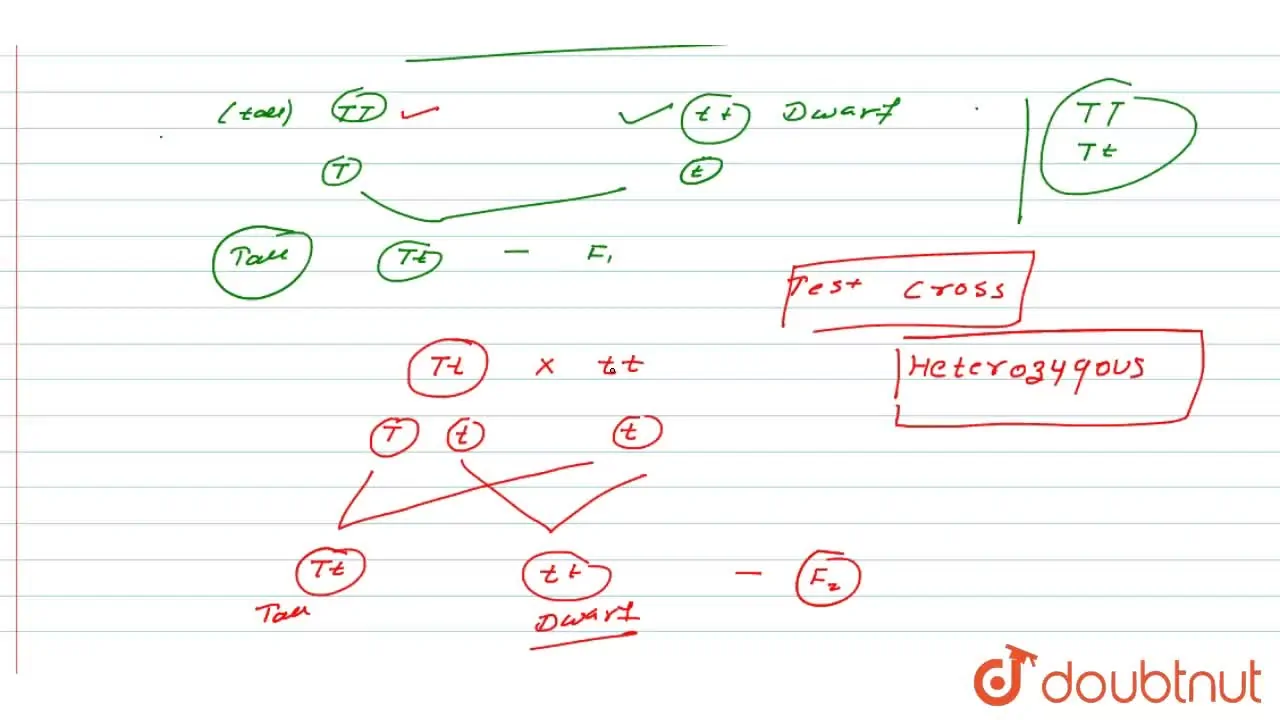 (tall) TT tt Dwarf
T t
TT
Tt
Tall Tt - F1
Test cross
Heterozygous
Tt x tt
T t t
Tt tt - F2
Tall Dwarf
doubtnut